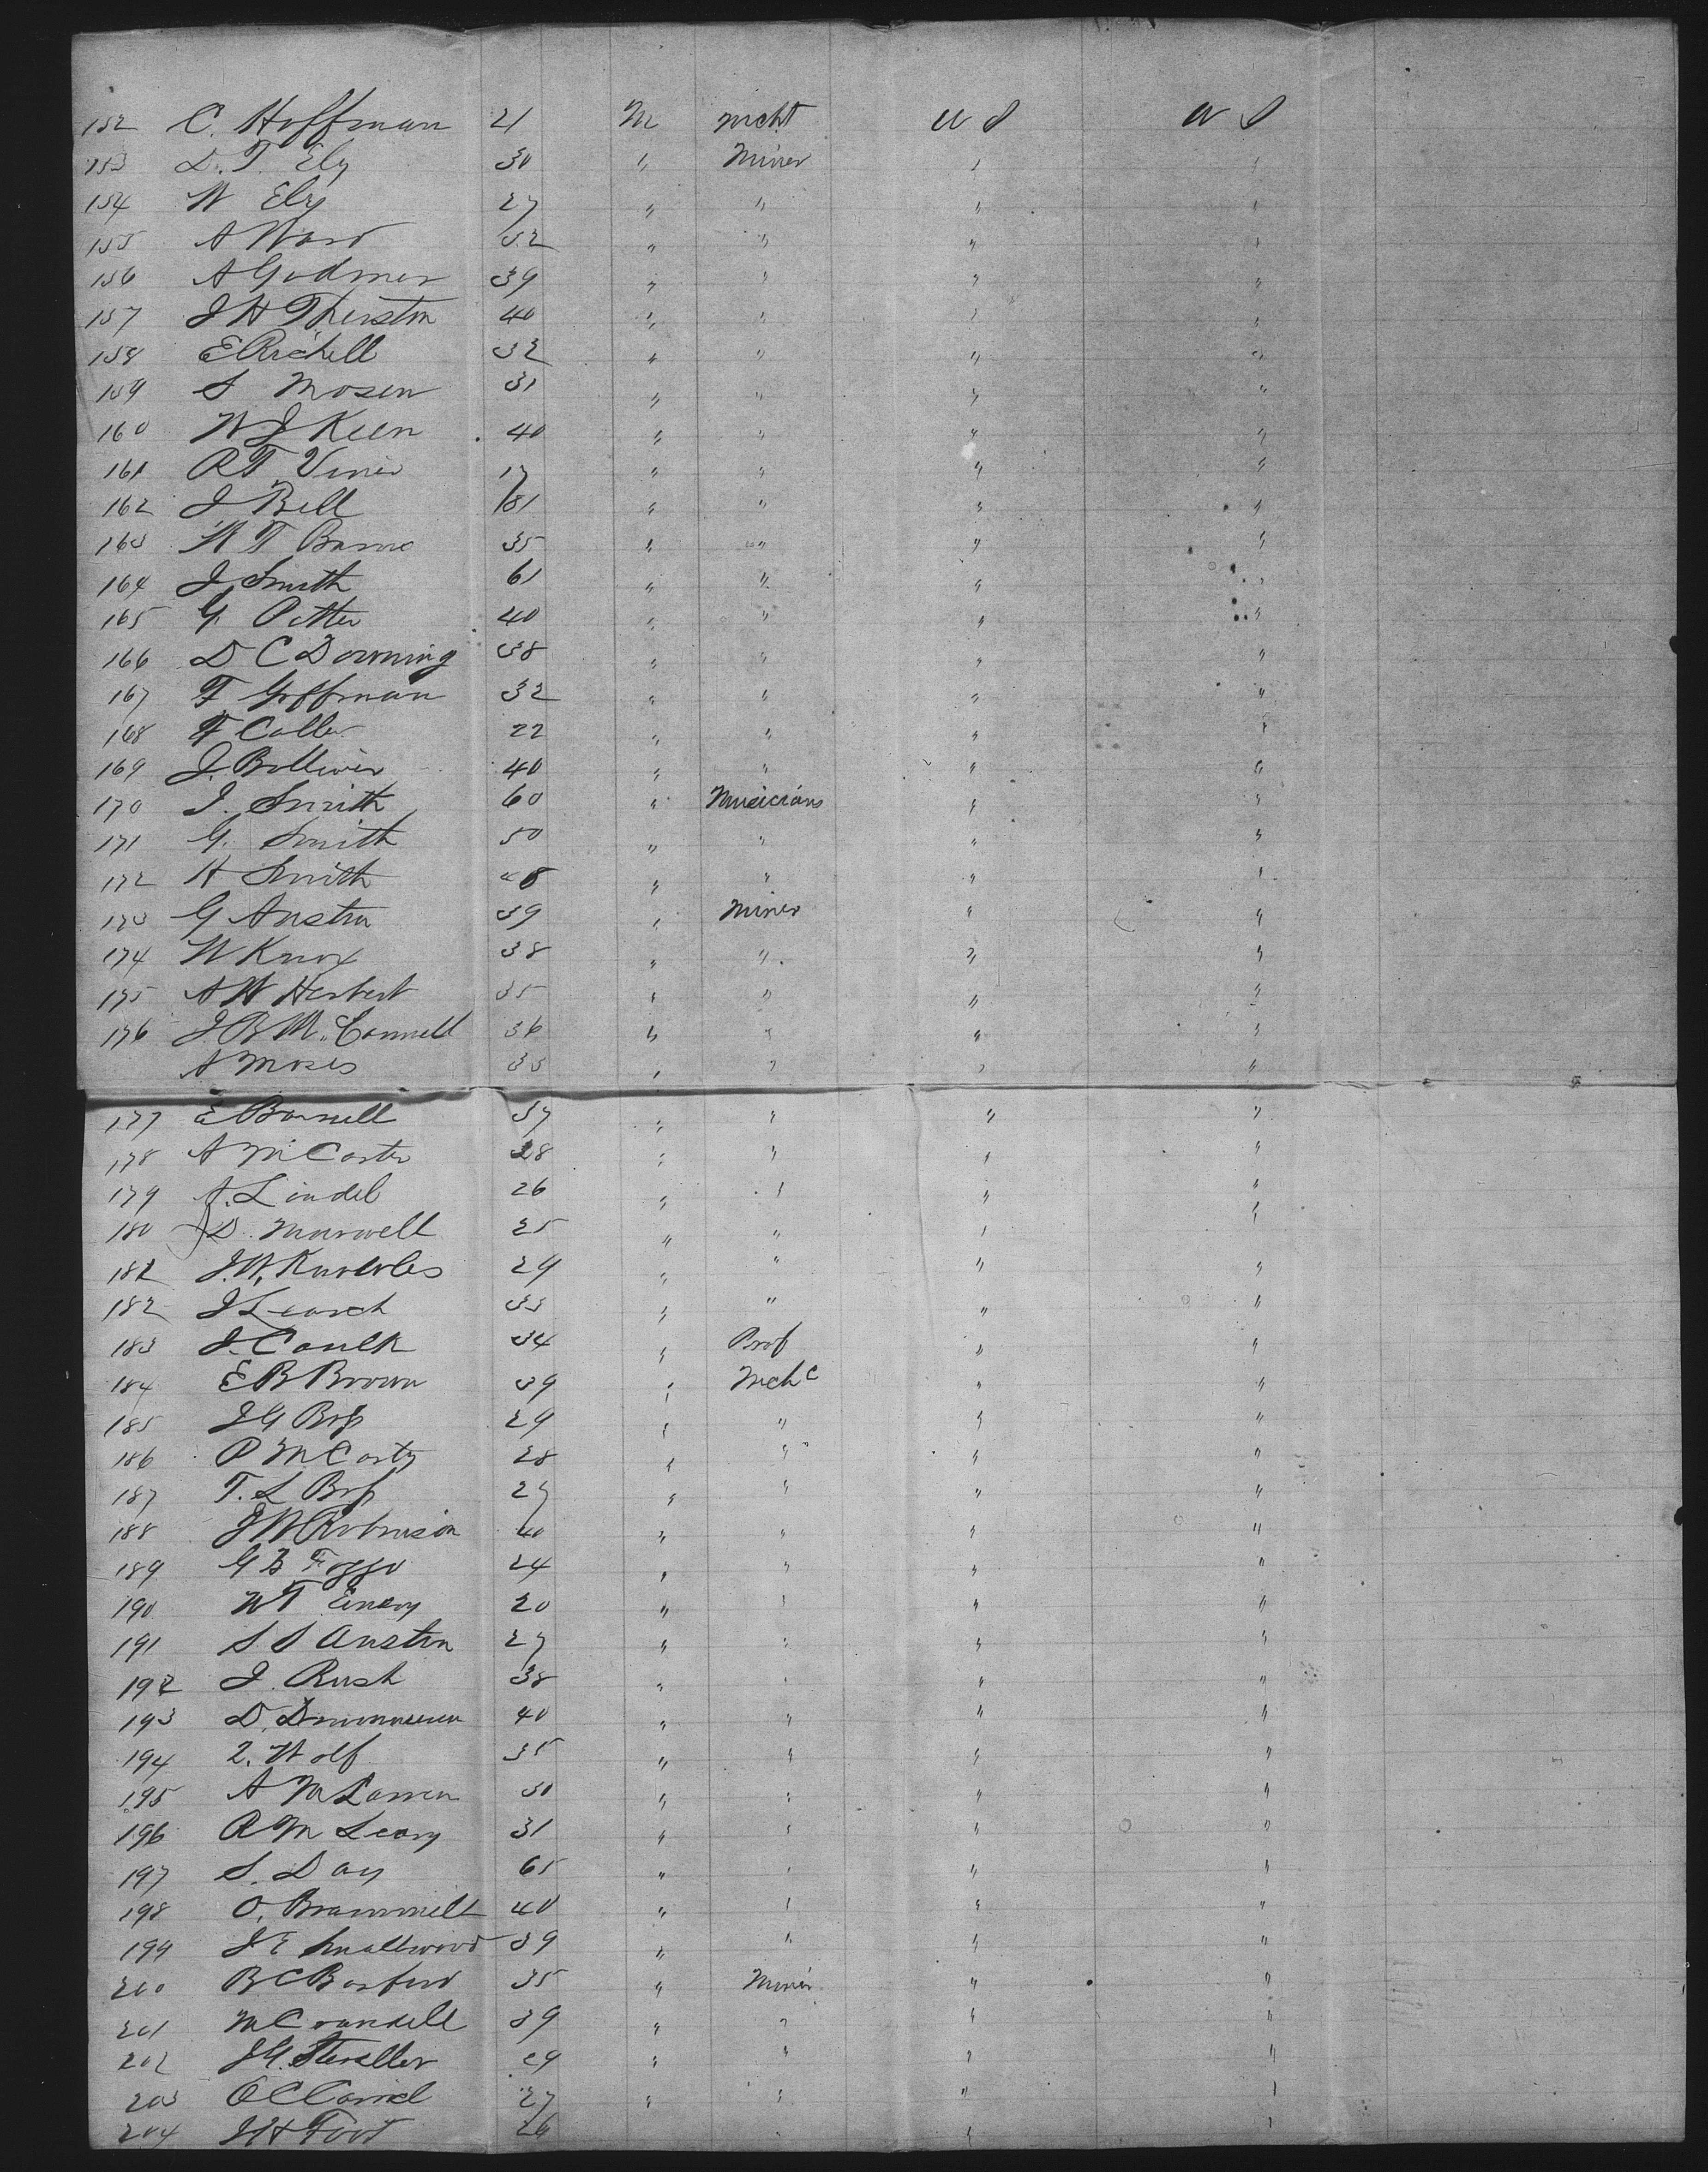 152 C. Hoffman 21 M mcht U S U S
153 D. T. Ely 30 " Miner " "
154 W Ely 27 " " " "
155 A Ward 32 " " " "
156 A Godmer 39 " " " "
157 J H Therston 40 " " " "
158 E Richell 32 " " " "
159 S Mosen 31 " " " "
160 W J Keen 40 " " " "
161 R T Vinier 17 " " " "
162 J Bell 181 " " " "
163 W T 35 " " " "
164 J Smith 61 " " " "
165 G. Potter 40 " " " "
166 D C Downing 38 " " " "
167 F Goffman 32 " " " "
168 F Coller 22 " " " "
169 J. Bolliver 40 " " " "
170 J. Smith 60 " Musicians " "
171 G. Smith 50 " " " "
172 H Smith 48 " " " "
173 G Austin 39 " Miner " "
174 W Knox 38 " " " "
175 A W Herbert 35 " " " "
176 J. B McConnell 36 " " " "
A Moses 35 " " " "
177 E Bonnell 37 " " " "
178 A McCarter 28 " " " "
179 A. Lindel 26 " " " "
180 D. Maxwell 25 " " " "
181 J. W. Knowles 29 " " " "
182 J Leasch 33 " " " "
183 J. Caulk 34 " Prof " "
184 E B Brown 39 " Mchc " "
185 J G Bop 29 " " " "
186 P McCarty 28 " " " "
187 T. L Bop 27 " " " "
188 J W Robinson 40 " " " "
189 G B Foggo 24 " " " "
190 W T Emery 20 " " " "
191 S S Austin 27 " " " "
192 J. Rush 38 " " " "
193 D. 40 " " " "
194 Z. Wolf 35 " " " "
195 A McLarren 30 " " " "
196 R McLeary 31 " " " "
197 S. Day 65 " " " "
198 O. Brammell 40 " " " "
199 J E Smallwood 39 " " " "
200 B C Bosford 35 " Miner " "
201 M Crandell 39 " " " "
202 J G. 29 " " " "
203 O C 27 " " " "
204 J H Foot 26 " " "